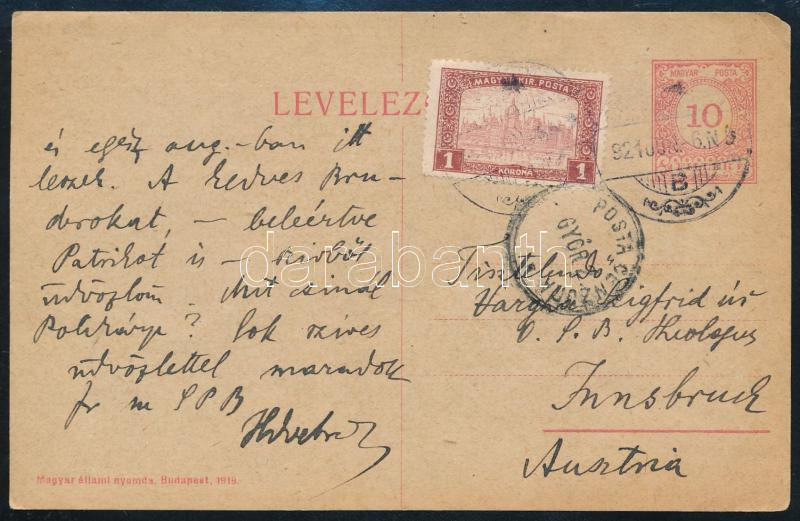 LEVELEZ
MAGYAR POSTA
10
MAGYAR KIR. POSTA
1 KORONA 1
921 JUN. 6. N 5
B
POSTA CENZURA
GYŐR
darabanth
és egész aug.-ban itt
leszek. A kedves Bru-
derokat, – beleértve
Patrikot is – szívből
üdvözlöm. Mit csinál
? Sok szíves
üdvözlettel maradok
fr m
Tisztelendő
Varga Szigfrid úr
O. S. B. theologus
Innsbruck
Ausztria
Magyar állami nyomda, Budapest, 1919.